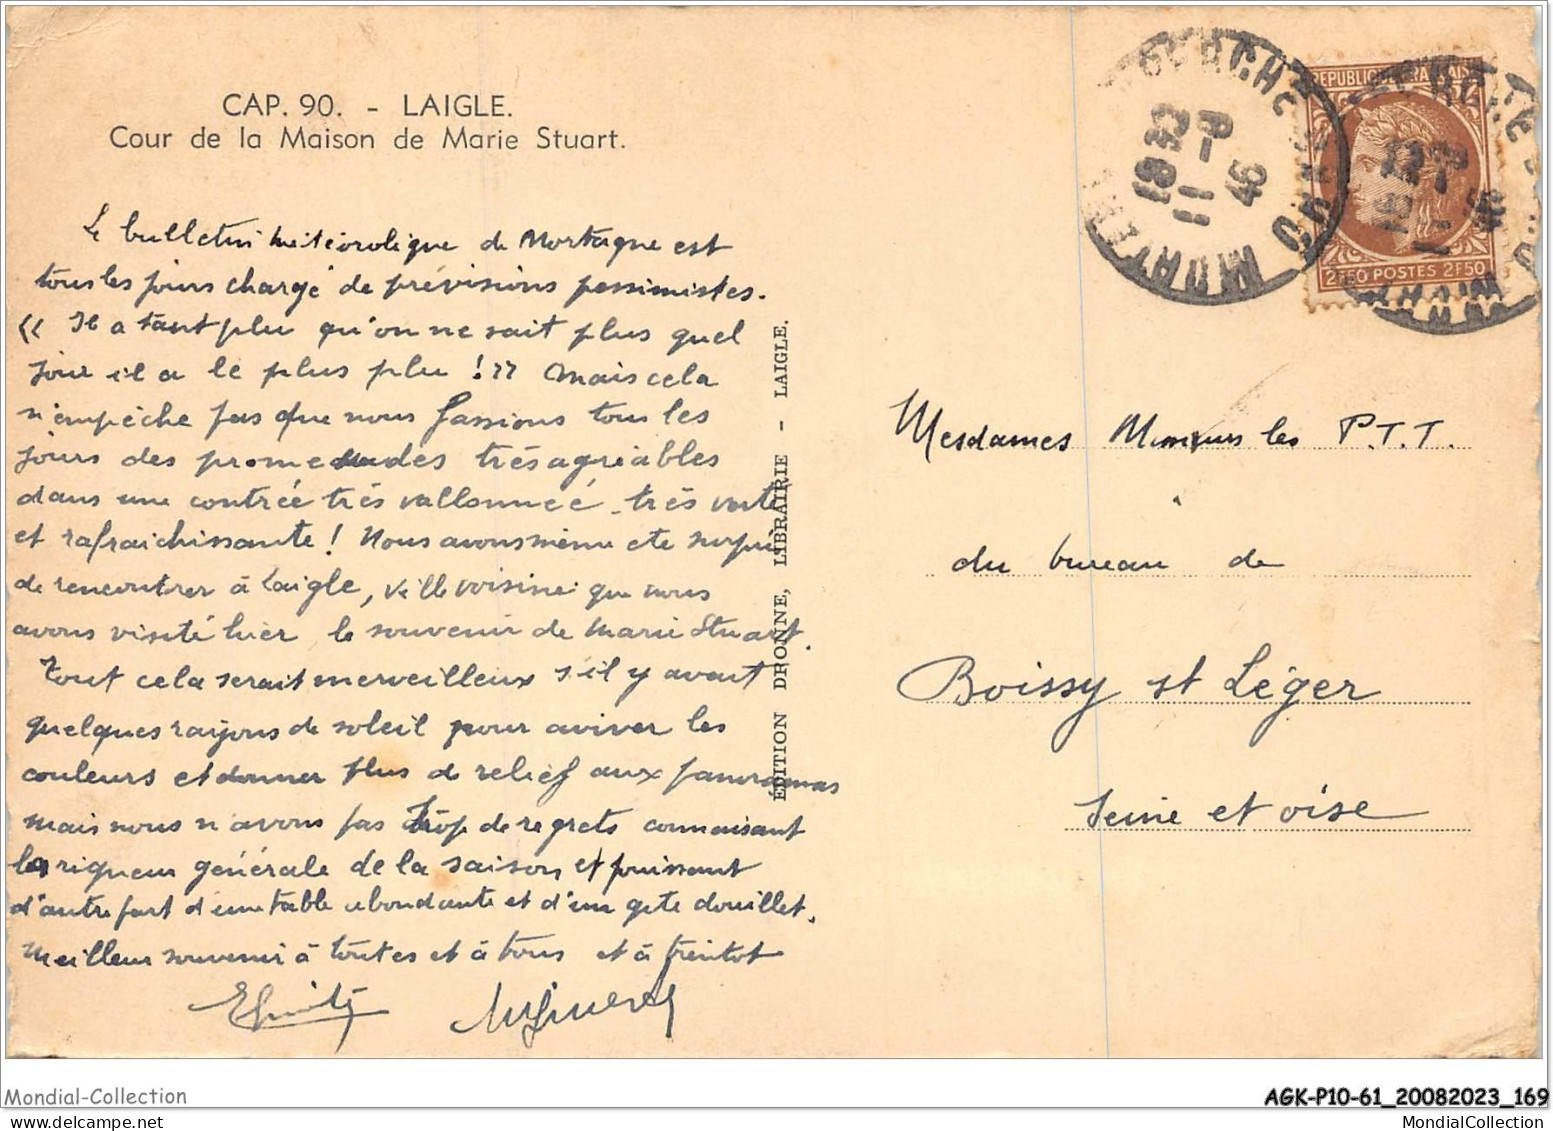 CAP. 90. - LAIGLE.
Cour de la Maison de Marie Stuart.
Le bulletin météorologique de Mortagne est
tous les jours chargé de prévisions pessimistes.
« Il a tant plu qu'on ne sait plus quel
jour il a le plus plu ! » Mais cela
n'empêche pas que nous fassions tous les
jours des promenades très agréables
dans une contrée très vallonnée, très verte
et rafraichissante ! Nous avons même été surpris
de rencontrer à Laigle, ville voisine que nous
avons visité hier, le souvenir de Marie Stuart.
Tout cela serait merveilleux s'il y avait
quelques rayons de soleil pour aviver les
couleurs et donner plus de relief aux panoramas
mais nous n'avons pas trop de regrets connaissant
la rigueur générale de la saison et jouissant
d'autre part d'une table abondante et d'un gîte douillet.
Meilleur souvenir à toutes et à tous et à bientôt
EDITION DRONNE, LIBRAIRIE - LAIGLE.
REPUBLIQUE FRANÇAISE
2F50 POSTES 2F50
18 30
11 -9
46
ORNE
Mesdames Messieurs les P.T.T.
du bureau de
Boissy st Léger
Seine et oise
Mondial-Collection
AGK-P10-61_20082023_169
MondialCollection